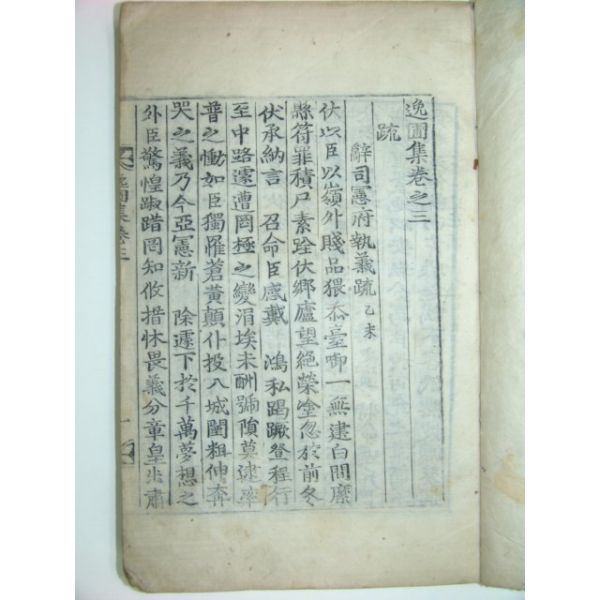 逸圃集卷之三
疏
辭司憲府執義疏 乙未
伏以臣以嶺外賤品猥忝臺啣一無建白問縻
縣符罪積尸素跧伏鄉廬望絶榮塗忽於前冬
伏承納言 召命臣感戴 鴻私蹈蹶登程行
至中路遽遭罔極之變涓埃未酬號隕莫逮率
普之慟如臣獨罹蒼黃顛仆投入城闉粗伸奔
哭之義乃今亞憲新 除遽下於千萬夢想之
外臣驚惶踧踖罔知攸措怵畏義分章皇出肅
逸圃集卷三 一